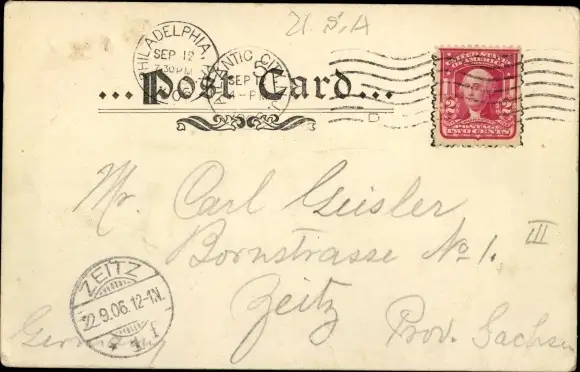 U.S.A
PHILADELPHIA, PA.
SEP 12
7 30 PM
ATLANTIC CITY, N.J.
SEP
-PM
...Post Card...
UNITED STATES
OF AMERICA
2 2
POSTAGE
TWO CENTS
D
Mr. Carl Geisler
Bornstrasse No 1. III
Zeitz
Germany Prov. Sachsen
ZEITZ
22.9.06.12-1N.